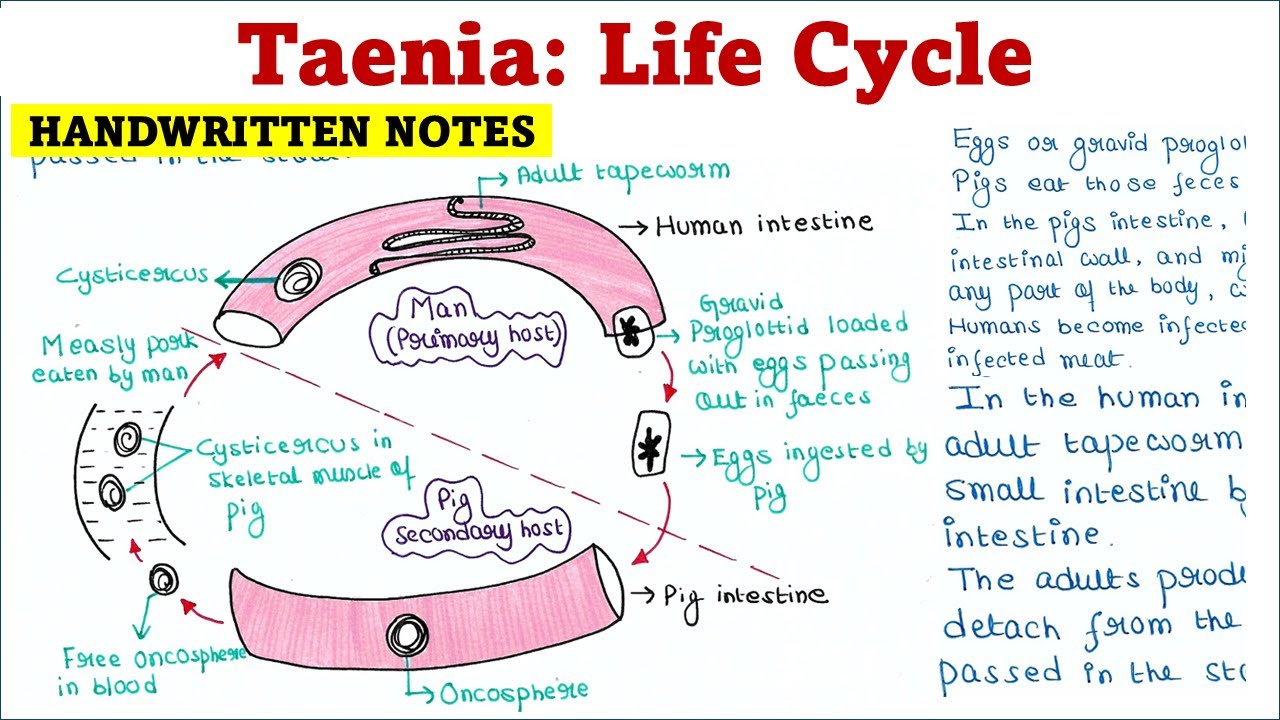 Taenia: Life Cycle
HANDWRITTEN NOTES
passed in the
Adult tapeworm
Human intestine
Cysticercus
Man
(Primary host)
Gravid
Proglottid loaded
with eggs passing
out in faeces
Measly pork
eaten by man
Cysticercus in
skeletal muscle of
pig
Eggs ingested by
pig
Pig
Secondary host
Pig intestine
Free oncosphere
in blood
Oncosphere
Eggs or gravid proglot
Pigs eat those feces
In the pigs intestine,
intestinal wall, and mi
any part of the body,
Humans become infecte
infected meat.
In the human in
adult tapeworm
small intestine b
intestine.
The adults produ
detach from the
passed in the sto